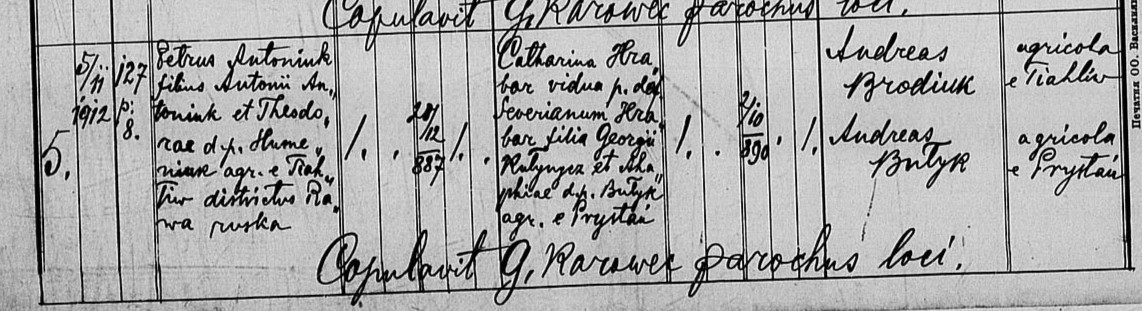 Copulavit G. Karowec parochus loci.
5.
5/11
1912
127
p:
8.
Petrus Antoniuk
filius Antonii An„
toniuk et Theodo„
rae d.p. Hume„
niuk agr. e Tiah„
liw districtus Ra„
wa ruska
/.
28/12
887
/.
Catharina Hra„
bar vidua p. def.
Severianum Hra„
bar filia Georgii
et Aha„
phiae d.p. Butyk
agr. e Prystań
/.
2/10
890
/.
Andreas
Brodiuk
agricola
e Tiahliw
Andreas
Butyk
agricola
e Prystań
Copulavit G. Karowec parochus loci.
Печатня ОО.